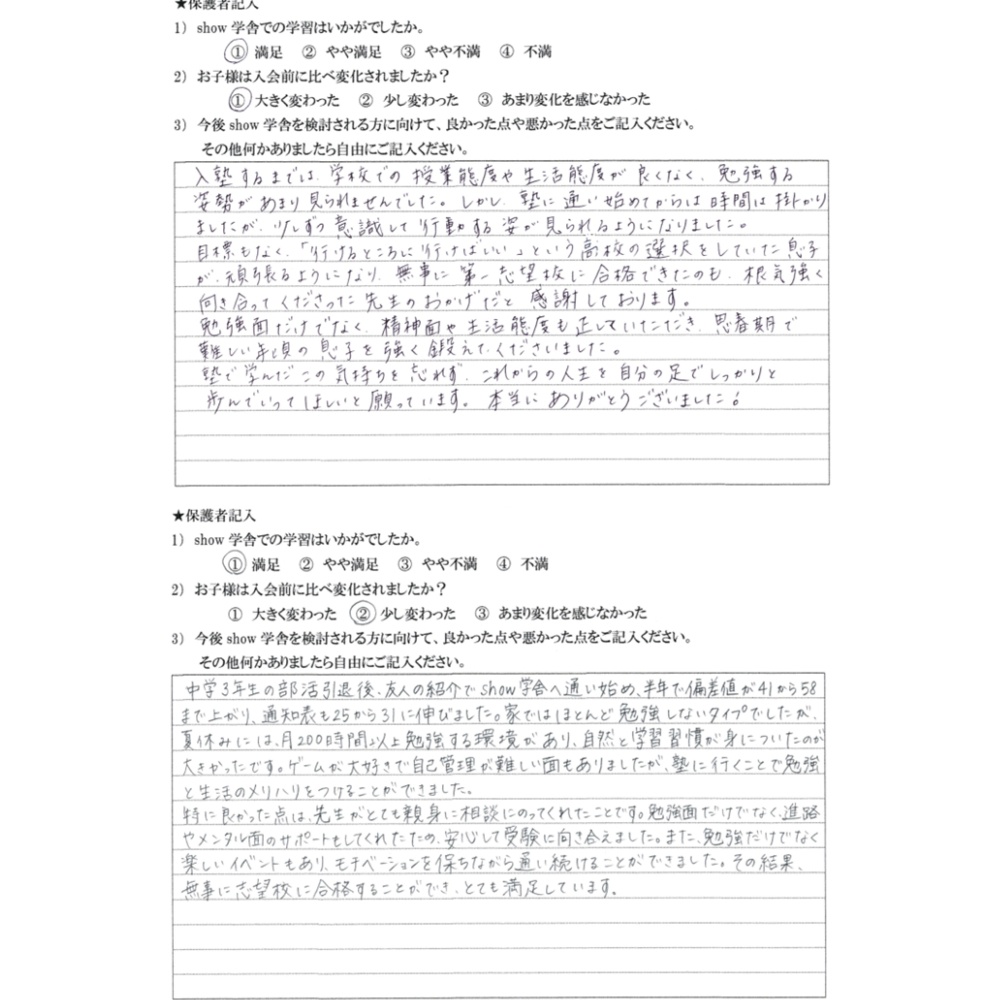 ★保護者記入
1）show 学舎での学習はいかがでしたか。
① 満足 ② やや満足 ③ やや不満 ④ 不満
2）お子様は入会前に比べ変化されましたか？
① 大きく変わった ② 少し変わった ③ あまり変化を感じなかった
3）今後 show 学舎を検討される方に向けて、良かった点や悪かった点をご記入ください。
その他何かありましたら自由にご記入ください。
入塾するまでは、学校での授業態度や生活態度が良くなく、勉強する
姿勢があまり見られませんでした。しかし、塾に通い始めてからは時間は掛かり
ましたが、少しずつ意識して行動する姿が見られるようになりました。
目標もなく、「行けるところに行けばいい」という高校の選択をしていた息子
が、頑張るようになり、無事に第一志望校に合格できたのも、根気強く
向き合ってくださった先生のおかげだと感謝しております。
勉強面だけでなく、精神面や生活態度も正していただき、思春期で
難しい年頃の息子を強く鍛えてくださいました。
塾で学んだこの気持ちを忘れず、これからの人生を自分の足でしっかりと
歩んでいってほしいと願っています。本当にありがとうございました！
★保護者記入
1）show 学舎での学習はいかがでしたか。
① 満足 ② やや満足 ③ やや不満 ④ 不満
2）お子様は入会前に比べ変化されましたか？
① 大きく変わった ② 少し変わった ③ あまり変化を感じなかった
3）今後 show 学舎を検討される方に向けて、良かった点や悪かった点をご記入ください。
その他何かありましたら自由にご記入ください。
中学3年生の部活引退後、友人の紹介でshow学舎へ通い始め、半年で偏差値が41から58
まで上がり、通知表も25から31に伸びました。家ではほとんど勉強しないタイプでしたが、
夏休みには、月200時間以上勉強する環境があり、自然と学習習慣が身についたのが
大きかったです。ゲームが大好きで自己管理が難しい面もありましたが、塾に行くことで勉強
と生活のメリハリをつけることができました。
特に良かった点は、先生がとても親身に相談にのってくれたことです。勉強面だけでなく、進路
やメンタル面のサポートもしてくれたため、安心して受験に向き合えました。また、勉強だけでなく
楽しいイベントもあり、モチベーションを保ちながら通い続けることができました。その結果、
無事に志望校に合格することができ、とても満足しています。